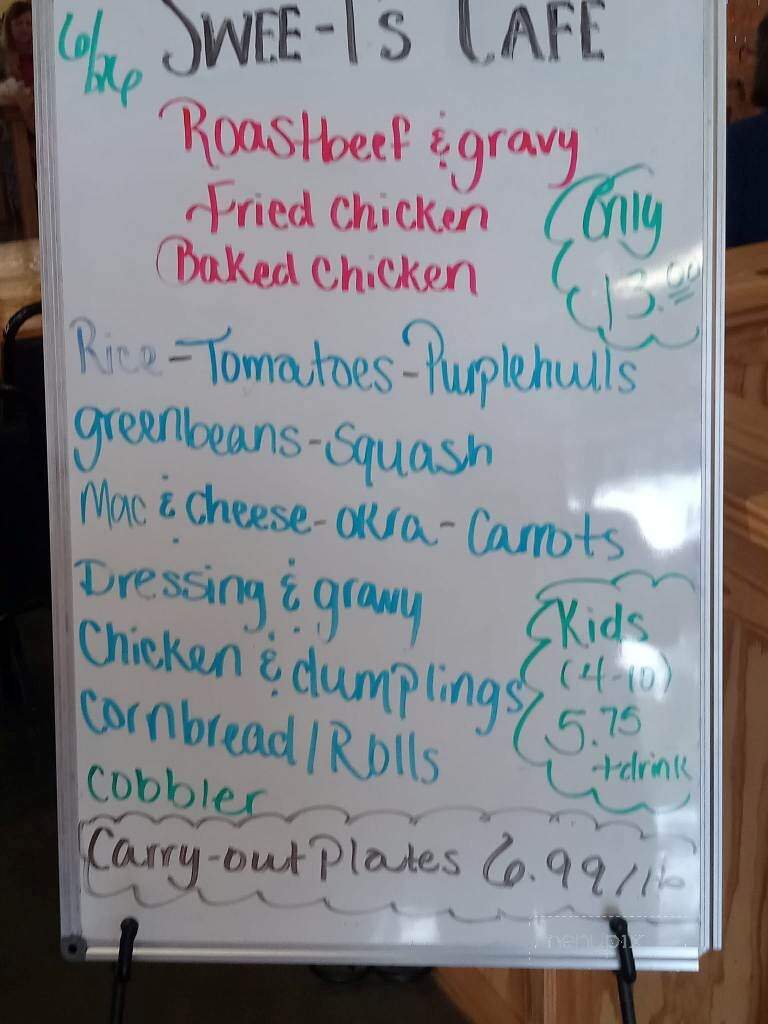 SWEE-T's CAFE
Roastbeef & gravy
Fried chicken
Baked chicken
Only
13.00
Rice-Tomatoes-Purplehulls
greenbeans-Squash
Mac & cheese-okra-Carrots
Dressing & gravy
Chicken & dumplings
cornbread/Rolls
cobbler
Kids
(4-10)
5.75
+drink
Carry-out Plates 6.99/lb
menupix